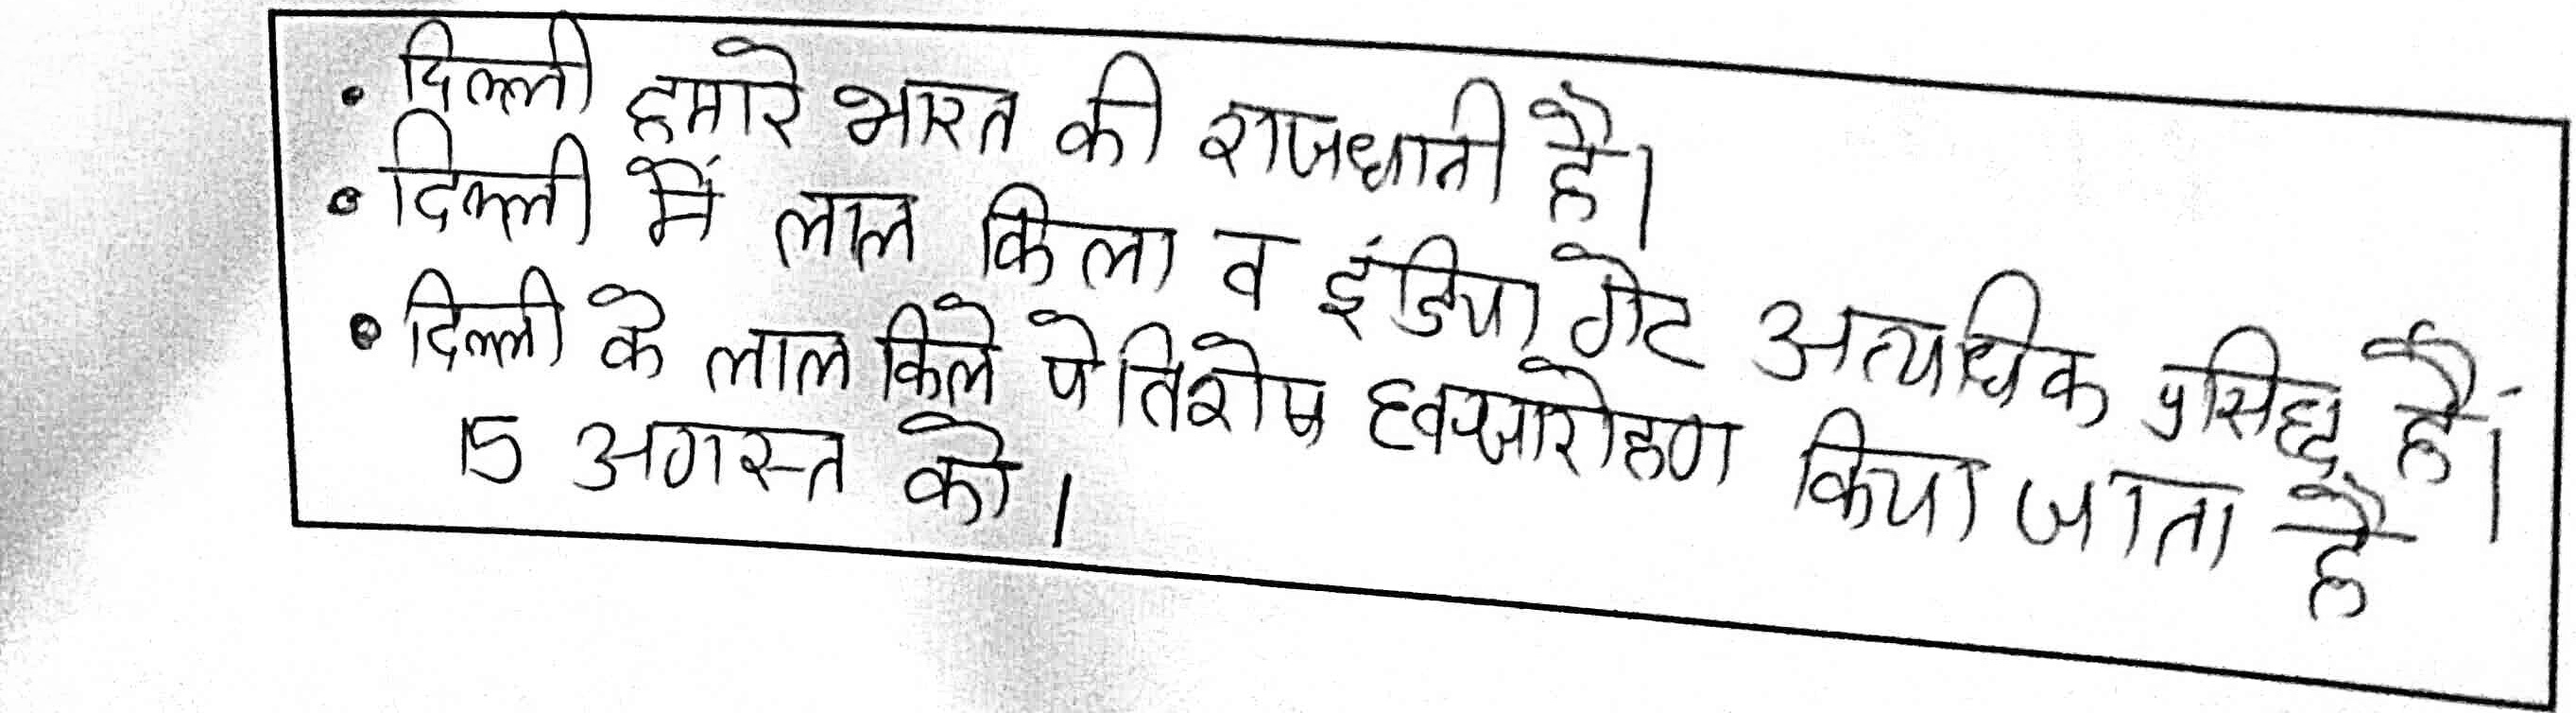 • दिल्ली हमारे भारत की राजधानी है।
• दिल्ली में लाल किला व इंडिया गेट अत्यधिक प्रसिद्ध हैं।
• दिल्ली के लाल किले पे विशेष ध्वजारोहण किया जाता है
15 अगस्त को।